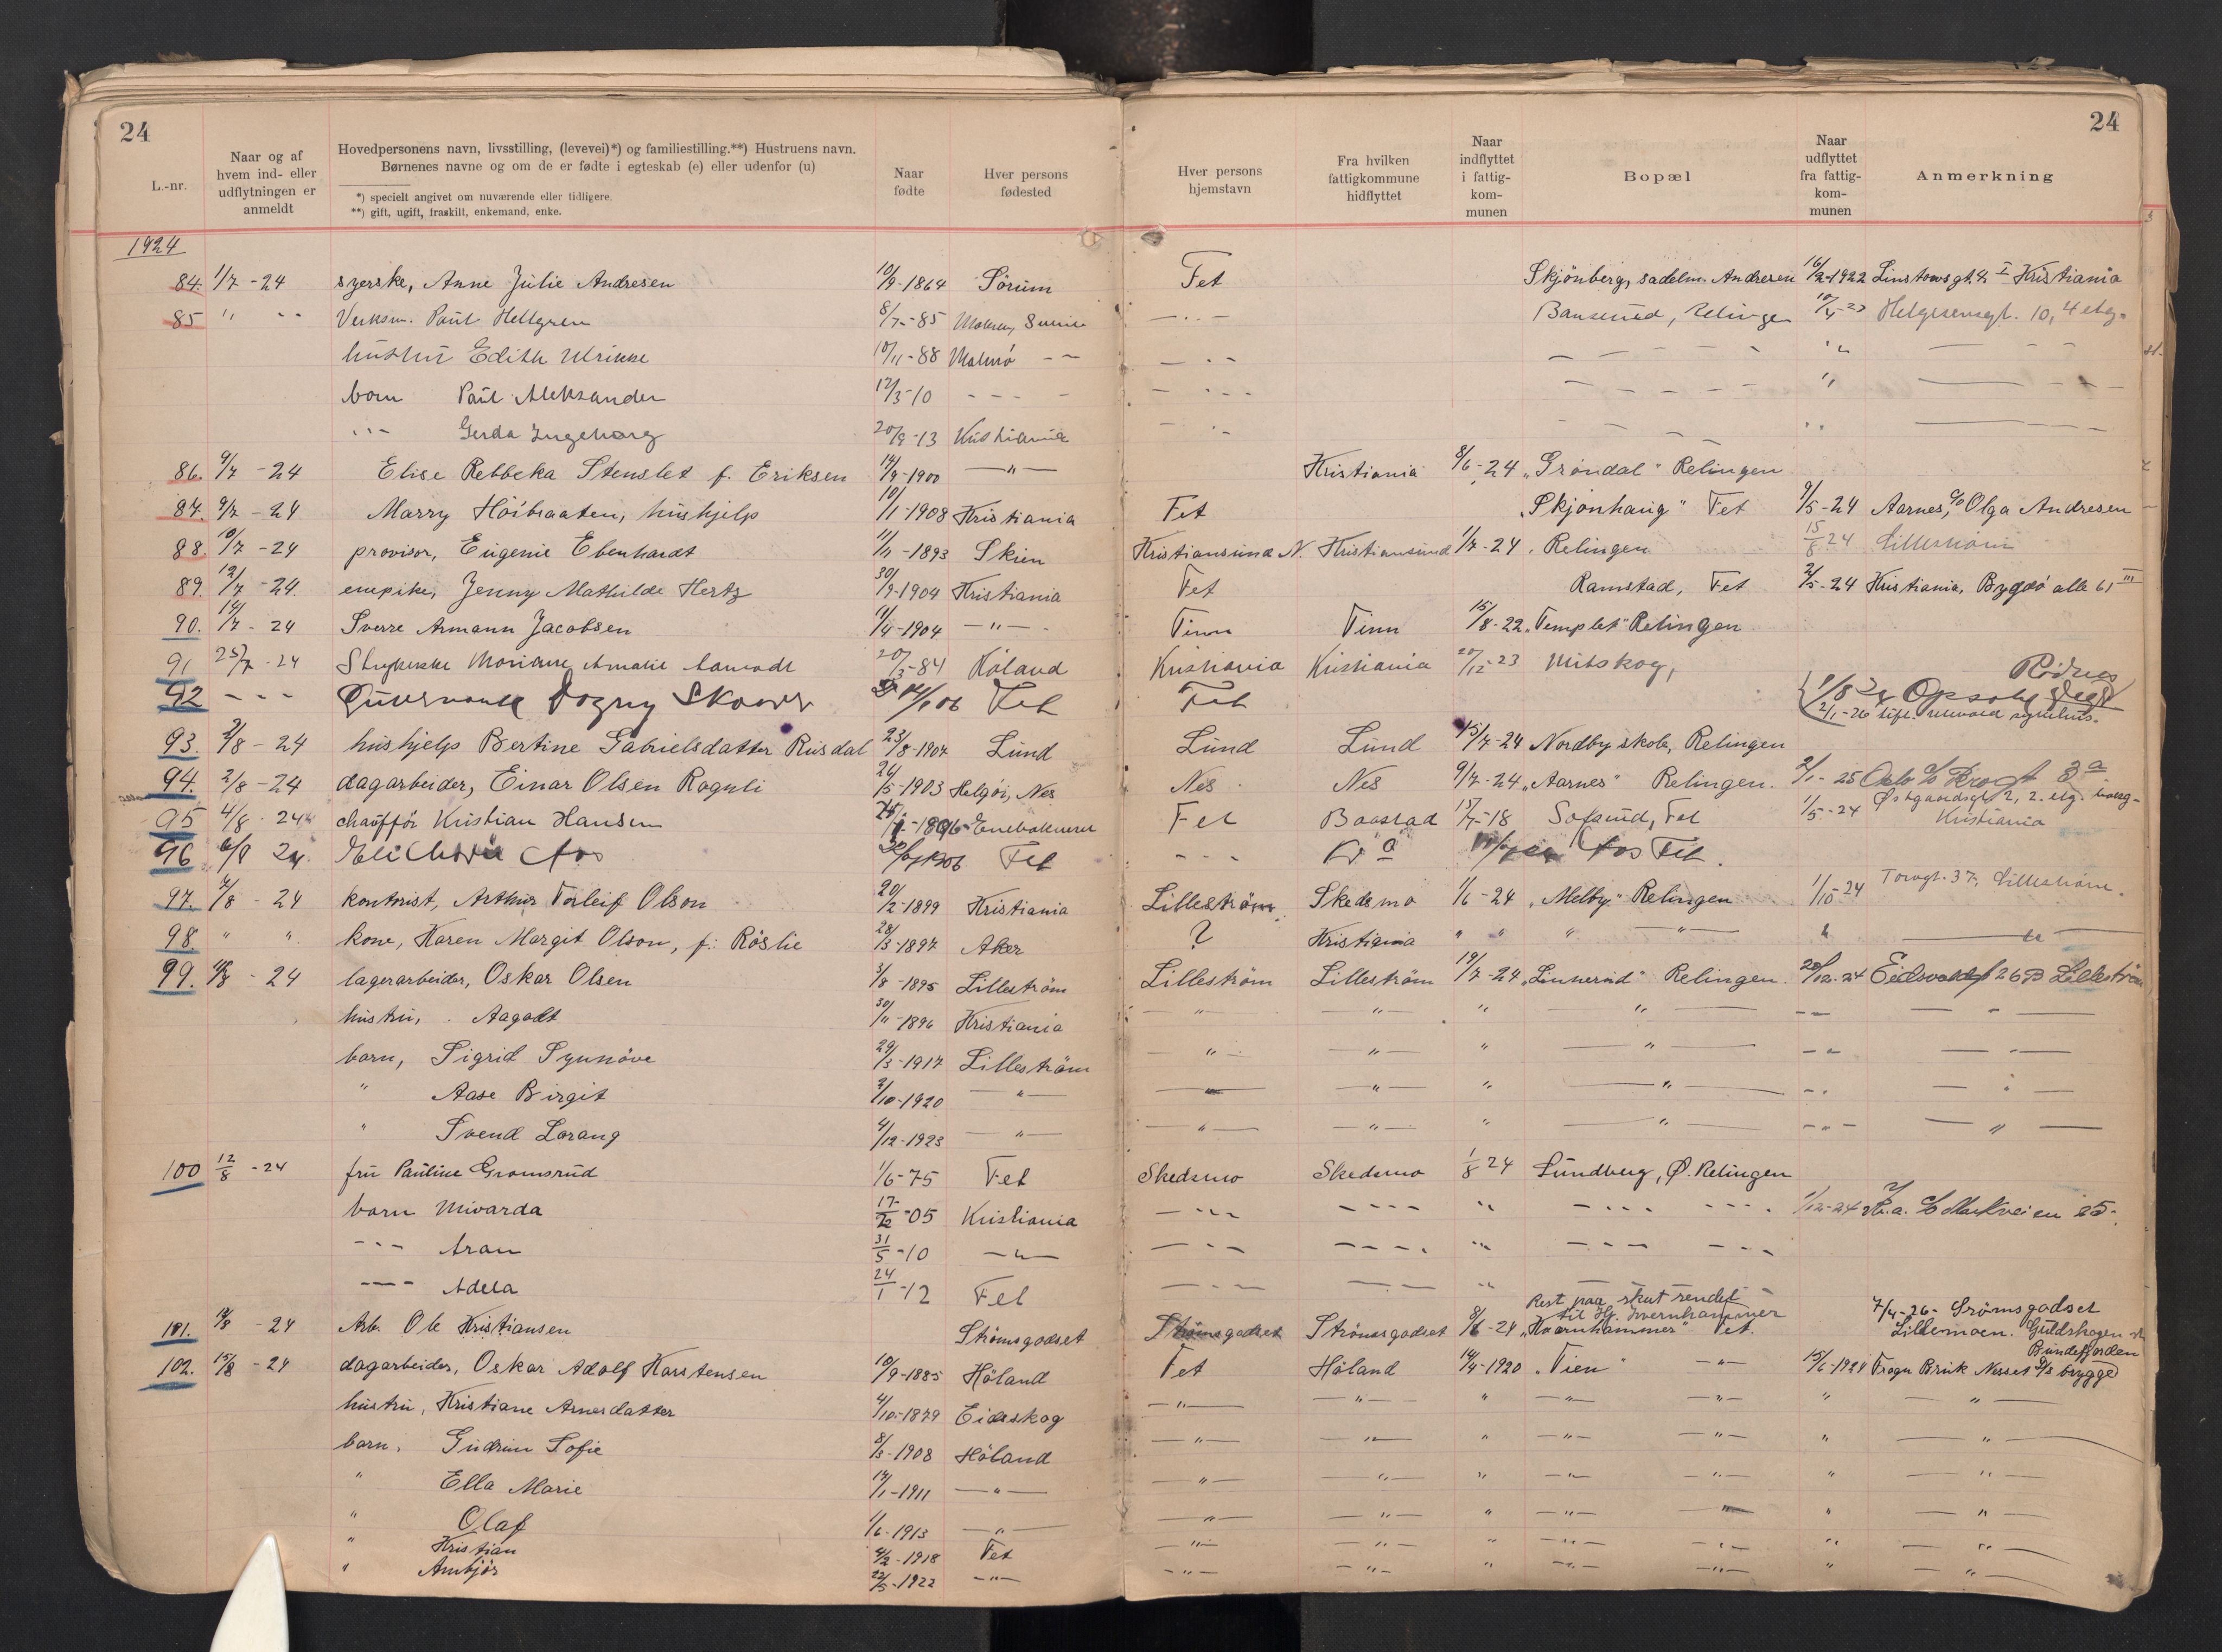 24
24
L.-nr.
Naar og af hvem ind- eller udflytningen er anmeldt
Hovedpersonens navn, livsstilling, (levevei)*) og familiestilling.**) Hustruens navn.
Børnenes navne og om de er fødte i egteskab (e) eller udenfor (u)
*) specielt angivet om nuværende eller tidligere.
**) gift, ugift, fraskilt, enkemand, enke.
Naar fødte
Hver persons fødested
Hver persons hjemstavn
Fra hvilken fattigkommune hidflyttet
Naar indflyttet i fattigkommunen
Bopæl
Naar udflyttet fra fattigkommunen
Anmerkning
1924
84. 1/7 - 24 syerske, Anne Julie Andresen 10/9-1864 Sörum Fet Skjönberg, sadelm. Andresen 16/2-1922 Linstowsgt. 4 I Kristiania
85 " - - Verksm. Paul Hellgren 8/7-85 Fet Bauserud, Relingen 10/4-23 Helgesensgt. 10, 4 etg.
hustru Edith Ulrikke 10/11-88 Malmö - -
barn Paul Aleksander 12/3-10 - - -
" Gerda Ingeborg 20/9-13 Kristiania
86. 9/7 - 24 Elise Rebbeka Stenslet f. Eriksen 14/9-1900 — " — Kristiania 8/6-24 "Gröndal" Relingen
87. 9/7 - 24 Marry Höibraaten, hushjelp 10/1-1908 Kristiania Fet "Skjönhaug" Fet 9/5-24 Aarnes, c/o Olga Andresen
88. 10/7 - 24 provisor, Eugenie Ebenhardt 11/1-1893 Skien Kristiansund N. Kristiansund 1/7-24 Relingen 15/8 24 Lilleström
89. 12/7 - 24. enepike, Jenny Mathilde Hertz 30/9-1904 Kristiania Fet Ramstad, Fet 2/5-24 Kristiania, Bygdö alle 61 III
90. 14/7 - 24 Sverre Armann Jacobsen 11/4-1904 — " — Tinn Tinn 15/8-22 "Templet" Relingen
91 25/7 - 24 Amalie 20/3-84 Höland Kristiania Kristiania 20/12-23 Nitskog,
92 - - - Dagny Fet Fet 1/8 24
2/1-26
93. 2/8 - 24 hushjelp Bertine Gabrielsdatter Rusdal 23/8-1907 Lund Lund Lund 15/7-24 Nordby skole, Relingen
94. 2/8 - 24 dagarbeider, Einar Olsen Roguli 24/5-1903 Helgöi, Nes. Nes Nes 9/7-24 "Aarnes" Relingen. 2/1-25 Oslo c/o
95 4/8 - 24 chaufför Kristian Hansen Fet Baastad 15/7-18 Fet 1/5-24 Østgaardsgt. 2, 2. etg.
Kristiania
96 6/8 24. Fet - - - Fet.
97. 7/8 - 24 kontorist, Arthur Torleif Olson 20/2-1899 Kristiania Lilleström Skedsmo 1/6-24 "Melby" Relingen 1/10-24 Torvgt. 37, Lilleström.
98. " " kone, Karen Margit Olson, f. Röslie 28/3-1897 Aker ? Kristiania " " " — " — " — " —
99. 11/8 - 24 lagerarbeider, Oskar Olsen 3/8-1895 Lilleström Lilleström Lilleström 19/7-24 "Linnerud" Relingen. 20/12-24 Eidsvoldgt 26 B Lilleström
hustru, Aagodt 30/11-1896 Kristiania — " — — " — " " " —
barn, Sigrid Synnöve 29/3-1917 Lilleström " — " — " — " —
" Aase Birgit 2/10-1920 — " — — " — " — " —
" Svend Lorang 4/12-1923 — " — — " — " — " —
100 12/8 - 24 fru Pauline Gromsrud 1/6-75 Fet Skedsmo Skedsmo 1/8 24 Lundberg, Ø. Relingen
barn Mivarda 17/12-05 Kristiania 1/12-24 25.
- - - Aran 31/5-10 — " —
- - - Adela 24/1-12 Fet
Rest paa skat sendt til
7/4-26- Strömsgodset
101. 12/8 - 24 Arb. Ole Kristiansen Strömsgodset Strömsgodset Strömsgodset 8/6-24 "Kvernhammer" Fet. Lillemoen. Guldskogen
Bundefjorden
102. 15/8 - 24 dagarbeider, Oskar Adolf Karstensen 10/9-1885 Höland Fet Höland 14/4-1920 "Tien" — " — 15/6-1924 Frogn Bruk Nesset brygge
hustru, Kristiane Arnesdatter 4/10-1879 Eidsskog — " —
barn, Gudrun Sofie 8/3-1908 Höland — " —
" Ella Marie 14/1-1911 — " —
" Olaf 1/6-1913 — " —
" Kristian 4/2-1918 Fet — " —
" Arnbjör 22/5-1922 — " —